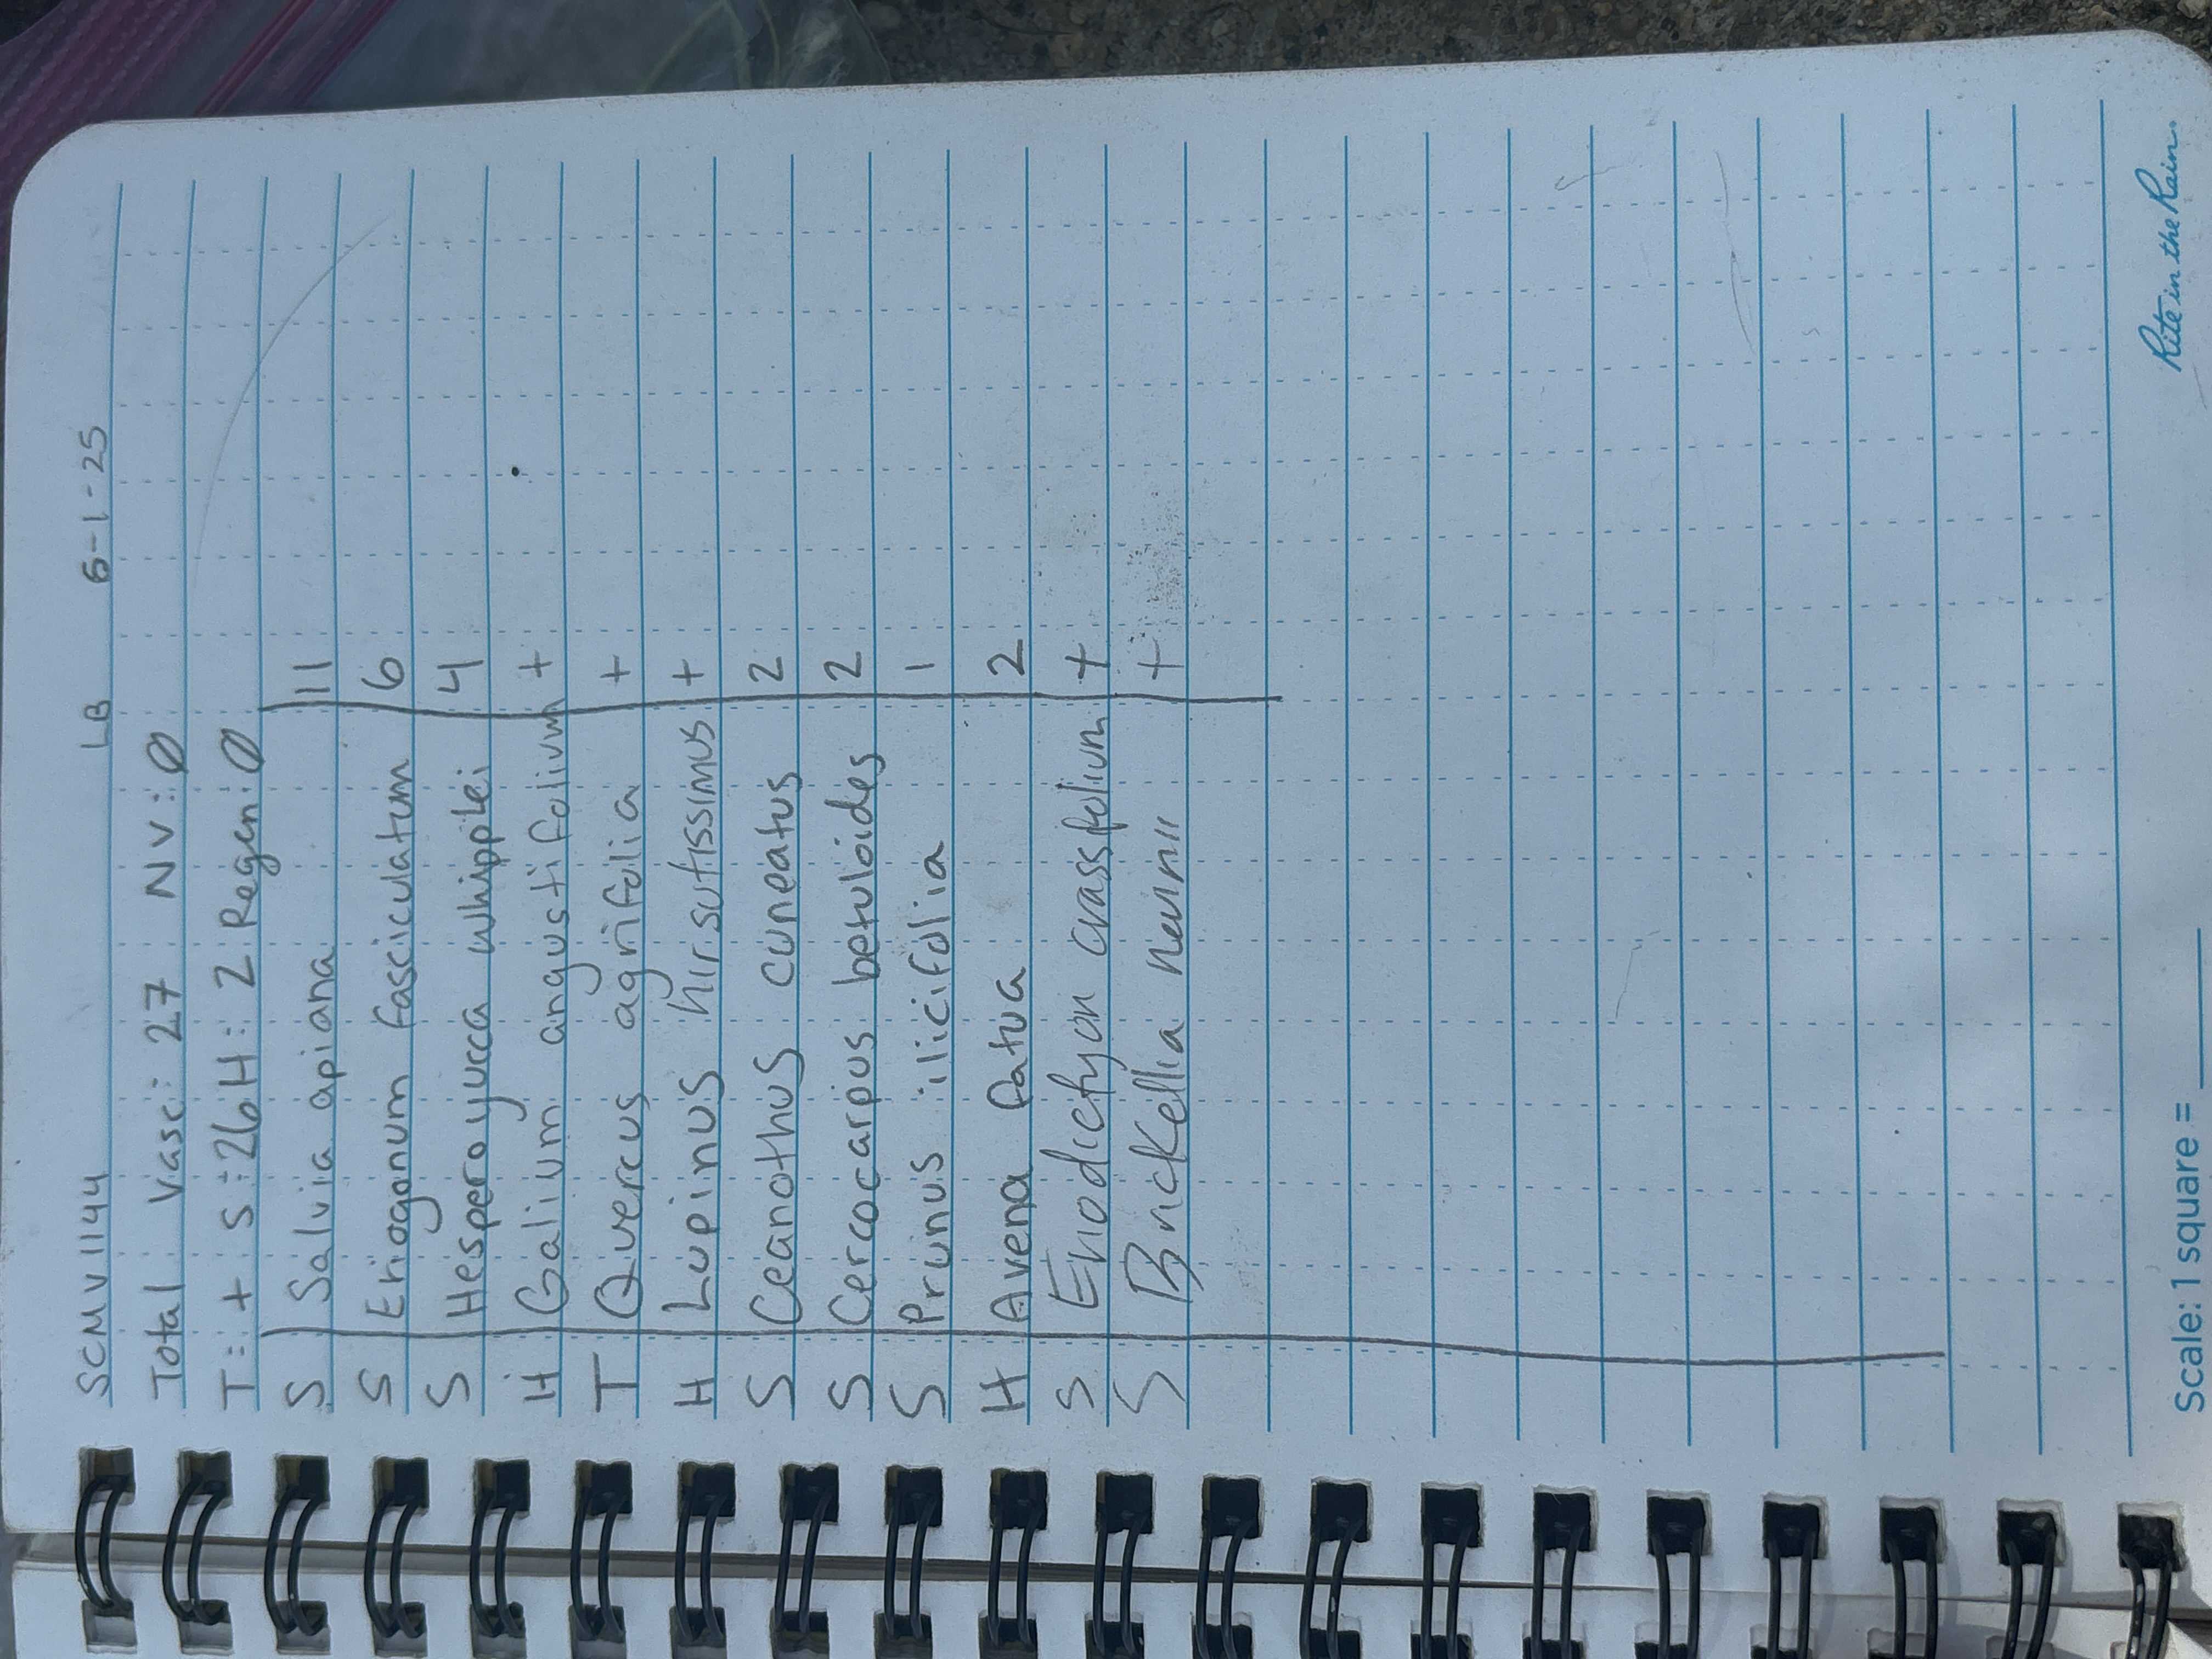 SCMV1144 LB 6-1-25
Total Vasc: 27 NV: Ø
T: + S: 26 H: 2 Regen: Ø
S Salvia apiana 11
S Eriogonum fasciculatum 6
S Hesperoyucca whipplei 4
H Galium angustifolium +
T Quercus agrifolia +
H Lupinus hirsutissimus +
S Ceanothus cuneatus 2
S Cercocarpus betuloides 2
S Prunus ilicifolia 1
H Avena fatua 2
S Eriodictyon crassifolium +
S Brickellia nevinii +
Scale: 1 square = ____
Rite in the Rain.